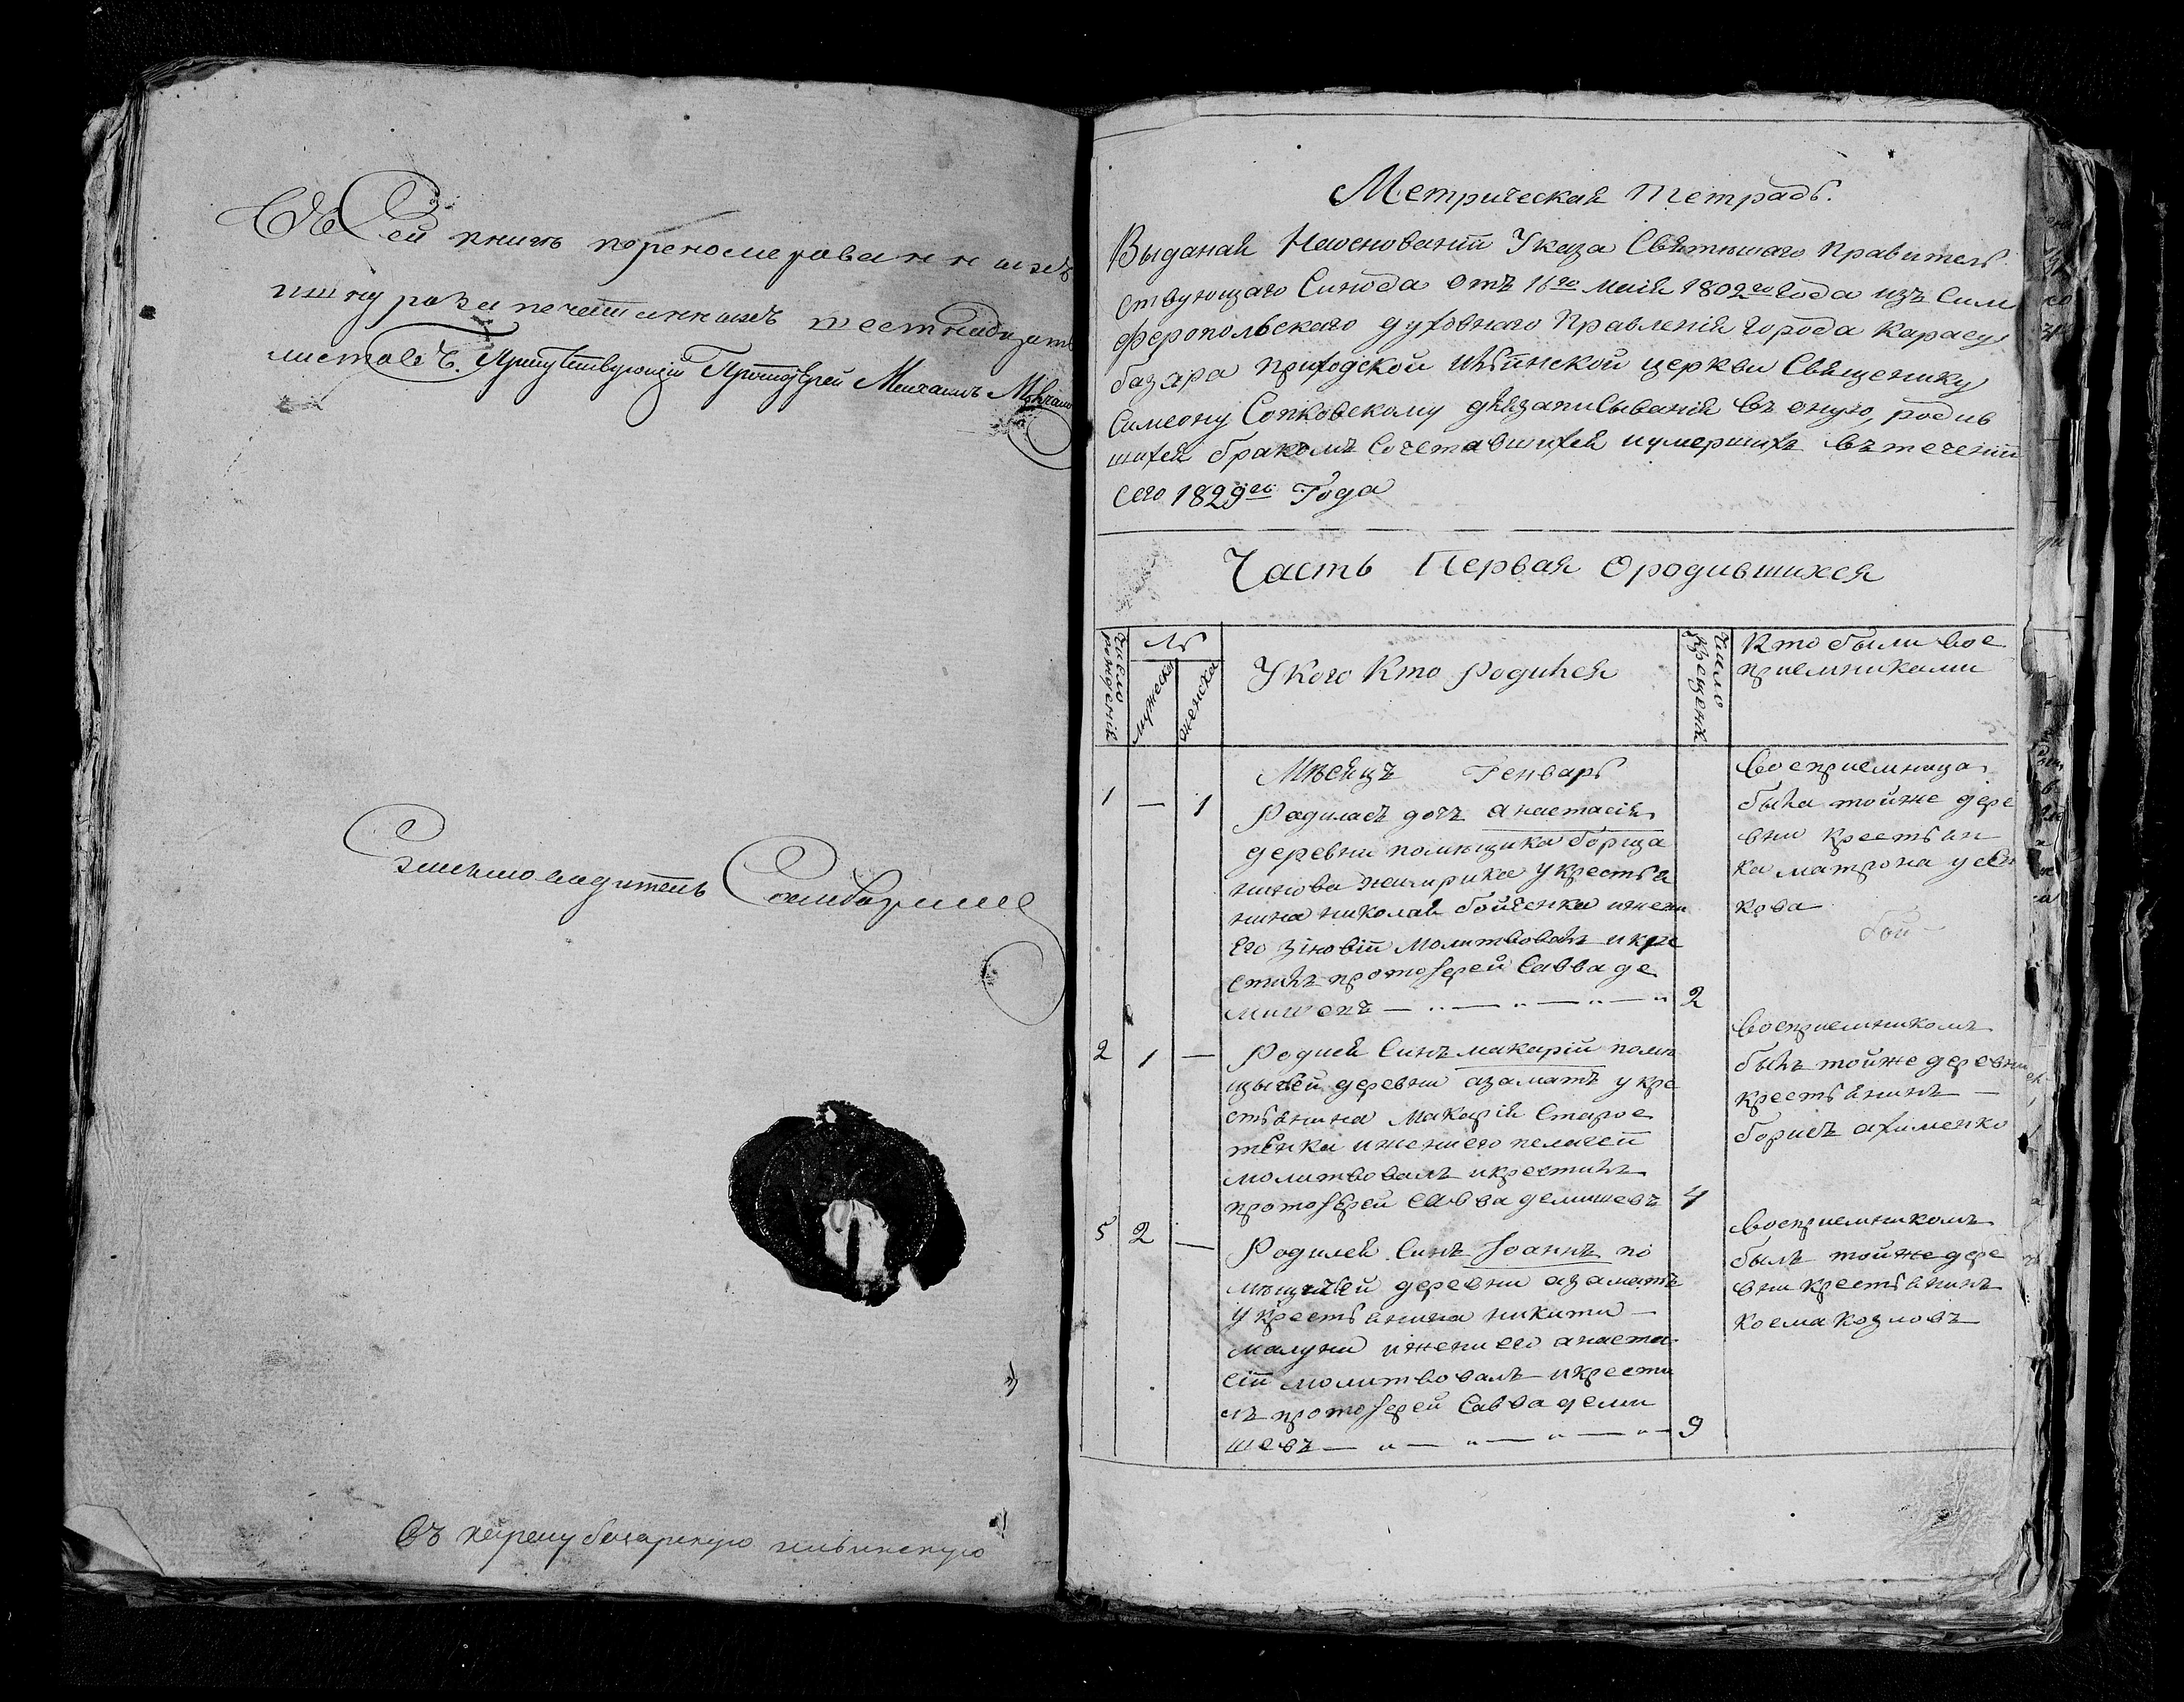 Въ Сей книгѣ переномерованныхъ
шнуразапечатанныхъ шестнадцать
листовъ. Присутствующій Протоіерей Михаилъ
Письмоводитель
Въ карасубазарскую
Метрическая тетрадь.
Выданая Наоснованіи Указа Святѣшаго Правитель
ствующаго Синода отъ 16го маія 1802го Года изъ Сим
феропольскаго духовнаго Правленія города Карасу
базара приходской церкви Священику
Симеону Сопковскому длязаписыванія въ оную, родив
шихся бракомъ Сочетавшихся иумершихъ въ теченіи
сего 1829го Года
Часть Первая Ородившихся
Число рожденій
№
мужеска
женска
Укого Кто Родился
Число крещенія
Кто были вос
приемниками
Мѣсяцъ Генварь
1 — 1
Радилась дочь анастасія
деревни помѣщика борща
нова укрестьа
нина николая бойченка ижени
Его Зіновіи Молитвовалъ икре
стилъ протоіерей Савва де
мишевъ — 2
Восприемница
была тойже дере
вни крестьян
ка матрона усен
кова
бои
2 1 —
Родися Синъ макарій помѣ
щичей деревни азаматъ укре
стьянина Макарія Старос
тенка иженыего пелагеи
молитвовалъ икрестилъ
протоіерей Савва демишевъ 4
Восприемникомъ
былъ тойже деревни
крестьянинъ —
борисъ ахименко
5 2 —
Родился Синъ Іоаннъ по
мѣщичей деревни азаматъ
укрестьянина никити —
малуни ижениего анаста
сіи молитвовалъ икрести
лъ протоіерей Савва деми
шевъ — 9
Восприемникомъ
былъ тойже дере
вни крестьянинъ
косма козловъ